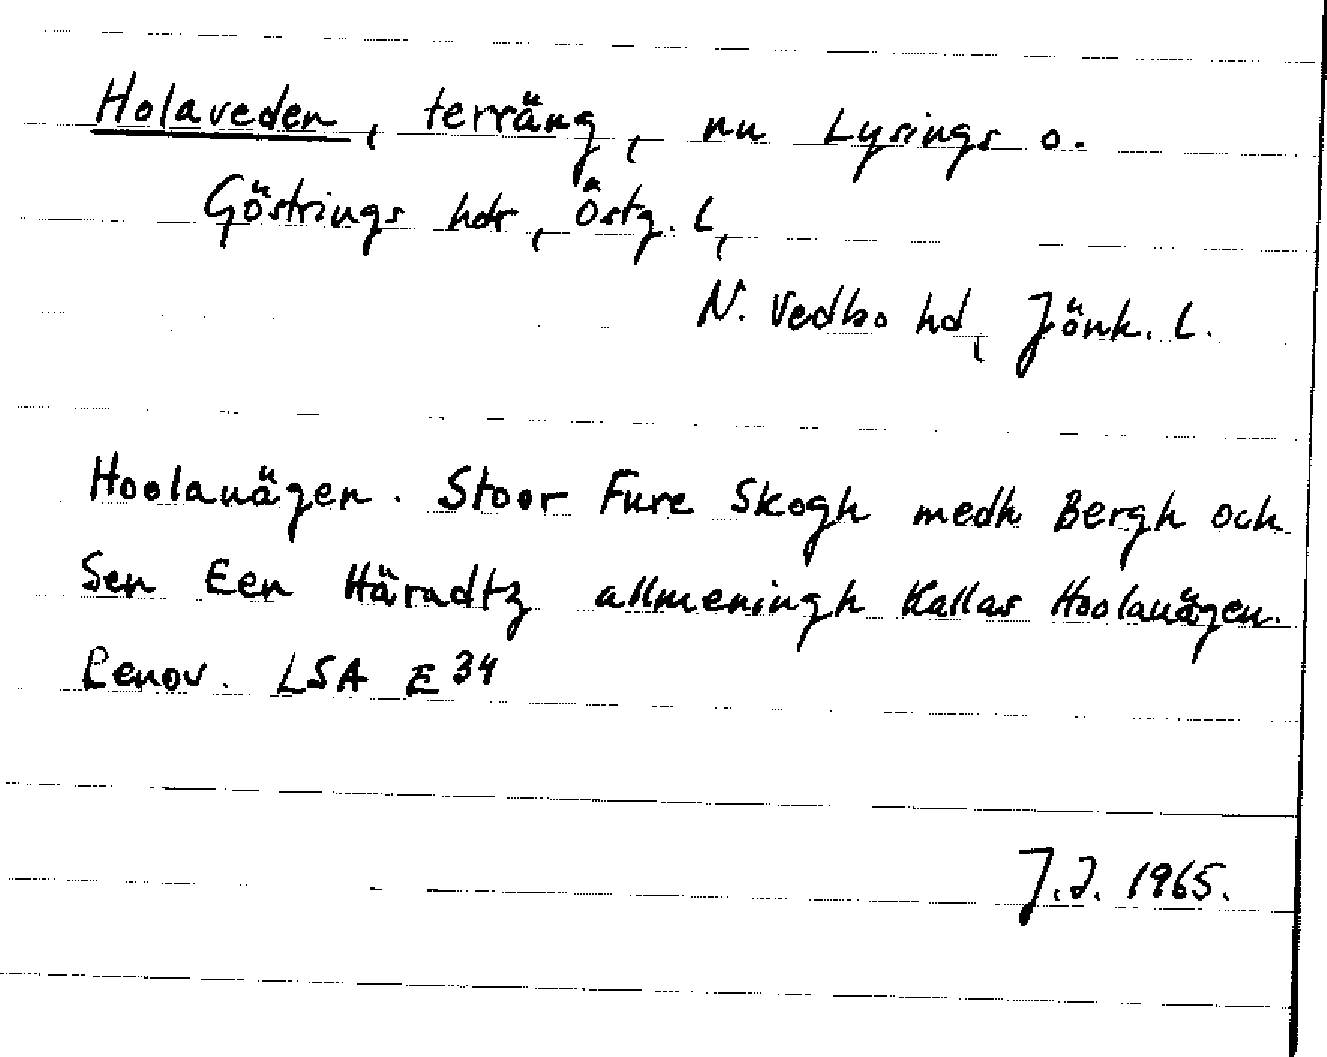 Holaveden, terräng, nu Lysings o.
Göstrings hdr, Östg. L,
N. Vedbo hd, Jönk. L.
Hoolauägen. Stoor Fure Skogh medh Bergh och
Sen Een Häradtz allmeningh Kallas Hoolauägen.
Renov. LSA E 34
J.J. 1965.